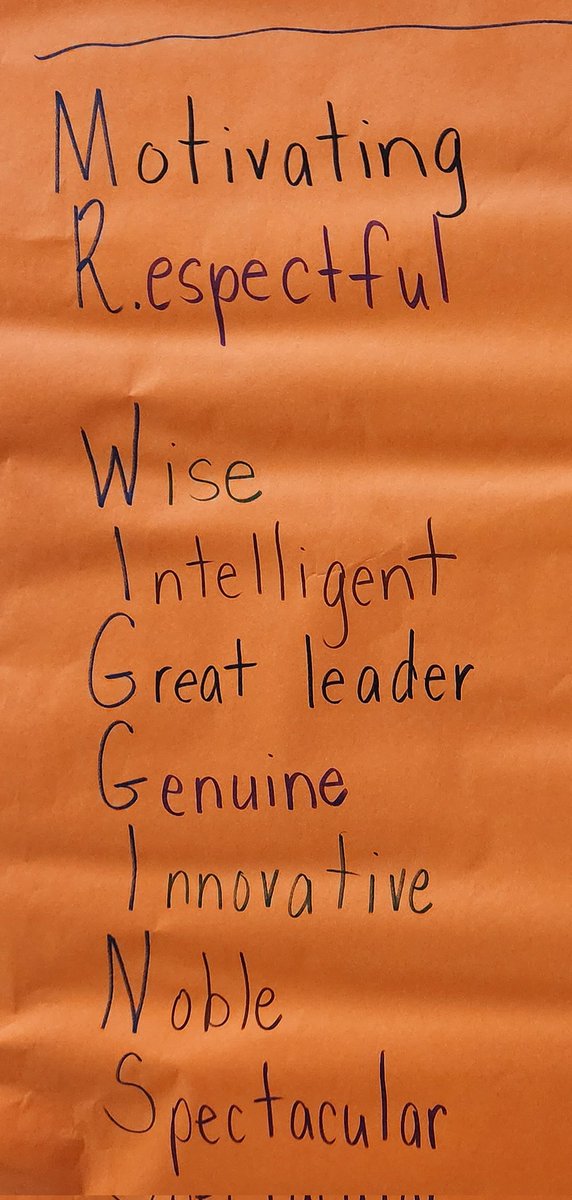 Motivating
R.espectful
Wise
Intelligent
Great leader
Genuine
Innovative
Noble
Spectacular